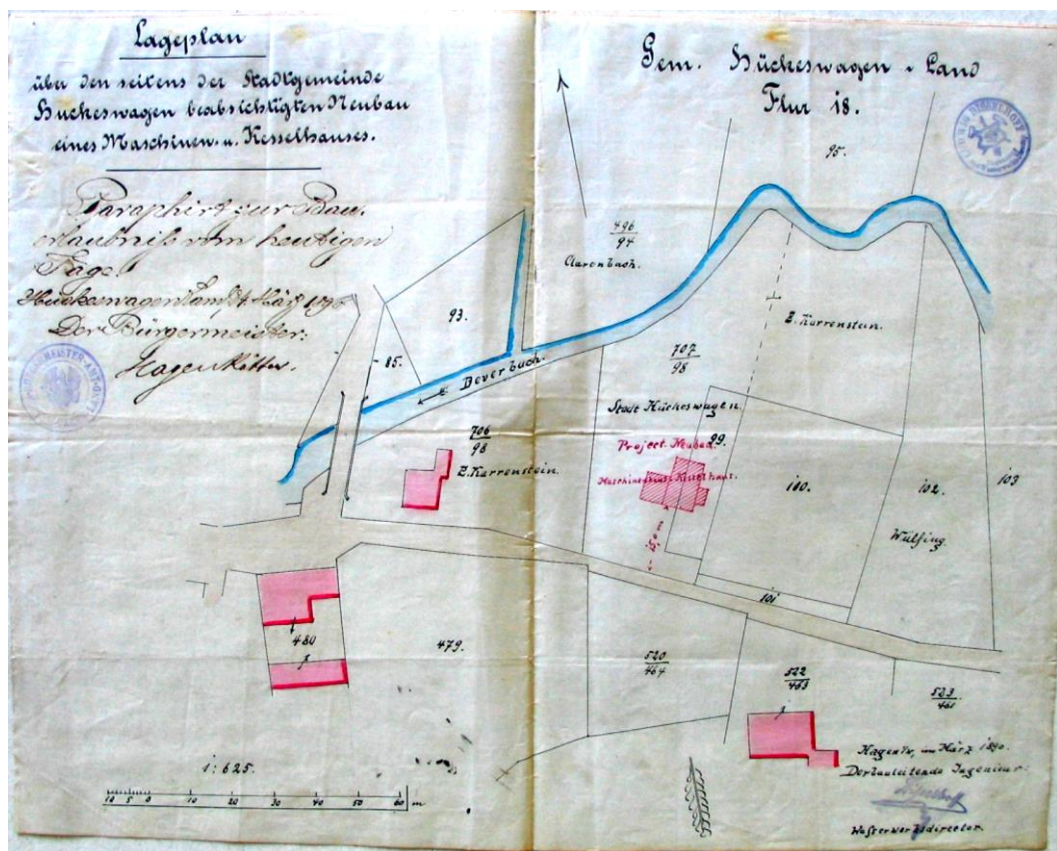 Lageplan
über den seitens der Stadtgemeinde
Hückeswagen beabsichtigten Neubau
eines Maschinen- u. Kesselhauses.
Paraphirt zur Bau-
erlaubniß vom heutigen
Tage.
Hückeswagen, März
Der Bürgermeister:
Hagenkötter.
Gem. Hückeswagen-Land
Flur 18.
95.
496
94
Clarenbach.
93.
85.
Beverbach.
E. Karrenstein.
707
98
706
98
E. Karrenstein.
Stadt Hückeswagen.
99.
Project. Neubau
Maschinenhaus Kesselhaus.
100.
102.
103
Wülfing
101
480
479.
520
464
522
463
523
461
1:625.
10 5 0 10 20 30 40 50 60 m
Hagen i/w, im März 1890.
Der bauleitende Ingenieur:
Wasserwerksdirector.